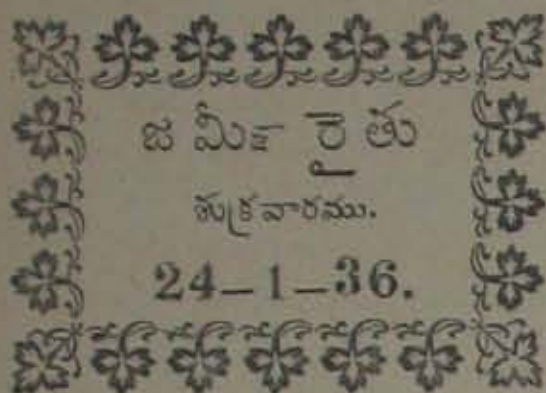 జమీన్ రైతు
శుక్రవారము.
24–1–36.